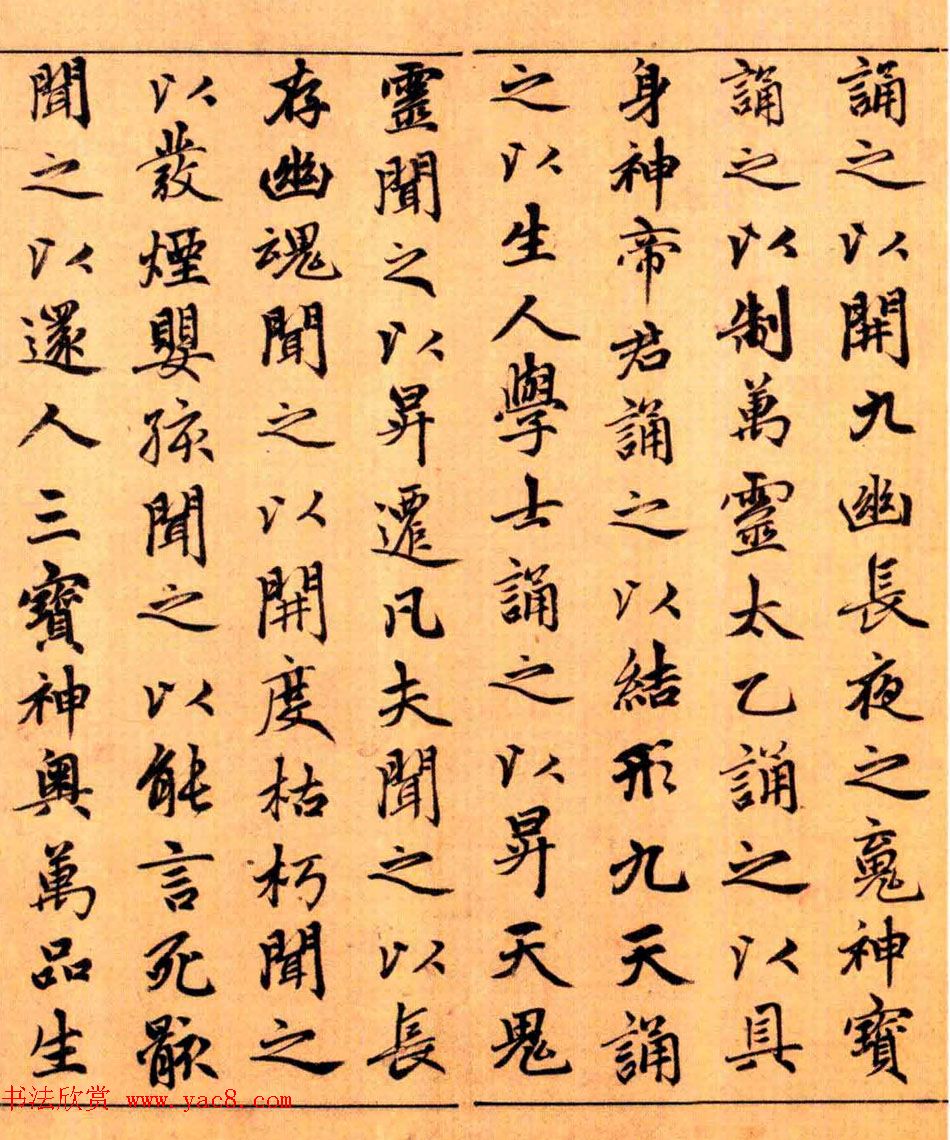 誦之以開九幽長夜之䰟神寳
誦之以制萬靈太乙誦之以具
身神帝君誦之以結形九天誦
之以生人學士誦之以昇天鬼
靈聞之以昇遷凡夫聞之以長
存幽魂聞之以開度枯朽聞之
以發煙嬰孩聞之以能言死骸
聞之以還人三寳神奥萬品生
书法欣赏 www.yac8.com